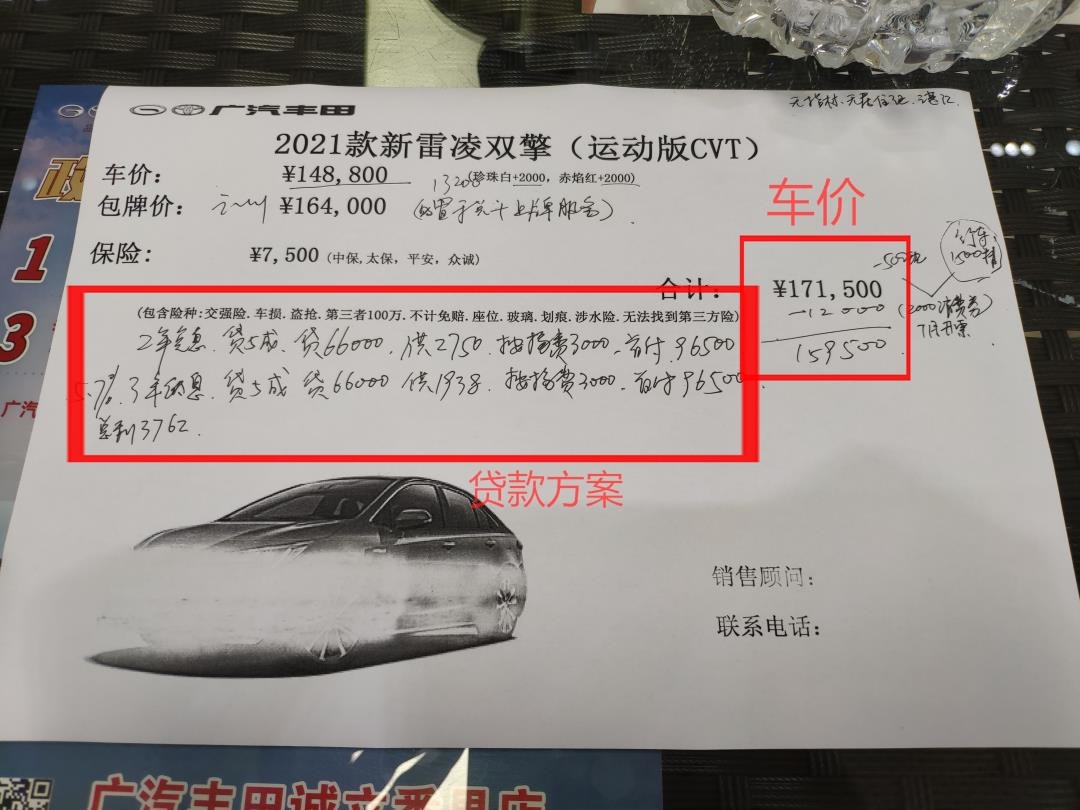 无指标.无居住证.湛江.
广汽丰田
2021款新雷凌双擎（运动版CVT）
车价： ¥148,800 (珍珠白+2000, 赤焰红+2000)
车价
包牌价： ¥164,000 (购置税+上牌服务).
保险: ¥7,500 (中保,太保，平安，众诚)
-500
1500
合计： ¥171,500
-12000
159500
(2000消费券)
7月开票
(包含险种:交强险.车损.盗抢.第三者100万.不计免赔.座位.玻璃.划痕.涉水险.无法找到第三方险)
2年免息.贷5成.贷66000.供2750.按揭费3000.首付96500
5.7%.3年 息.贷5成 贷66000 供1938.按揭费3000.首付96500.
总利3762.
贷款方案
销售顾问：
联系电话：
1
3
广汽
广汽丰田诚立番禺店